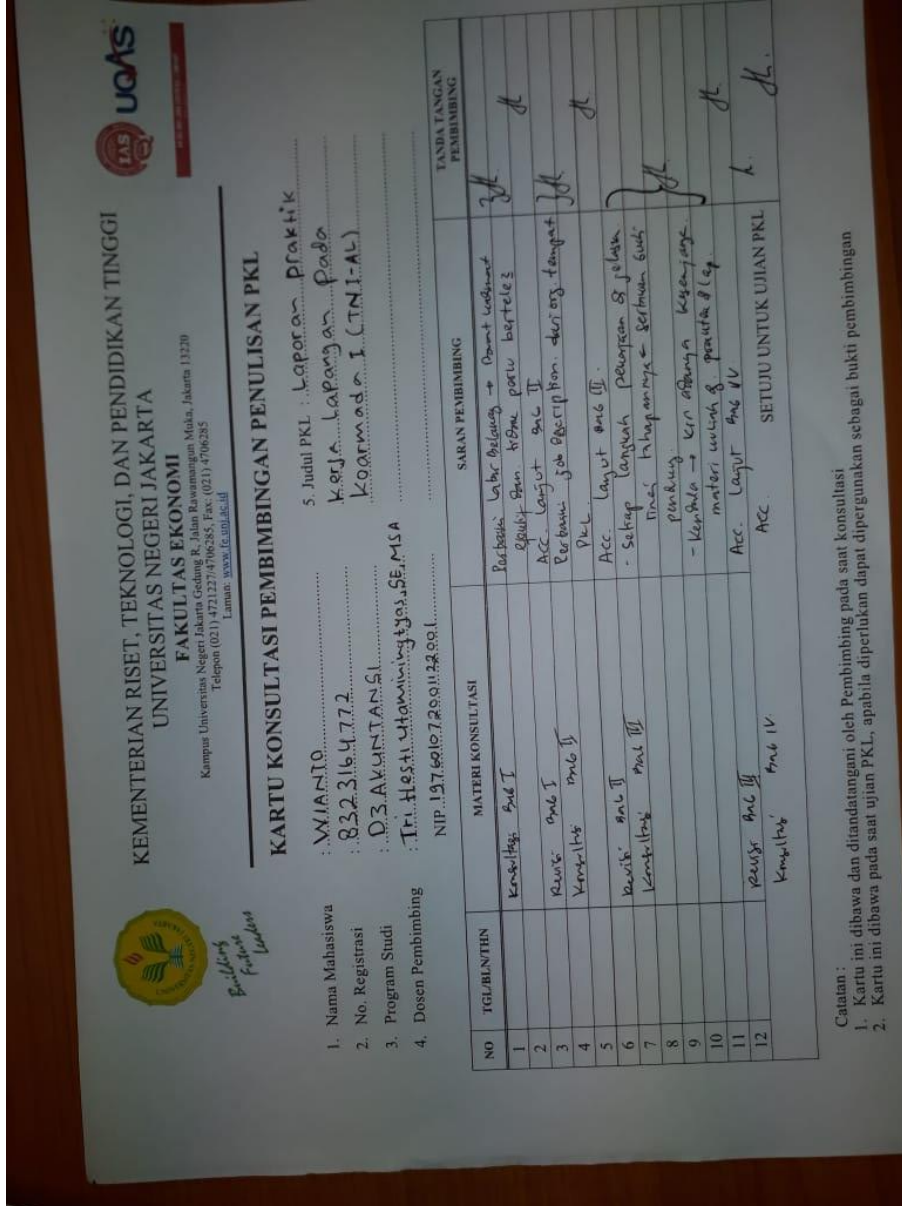 KEMENTERIAN RISET, TEKNOLOGI, DAN PENDIDIKAN TINGGI
UNIVERSITAS NEGERI JAKARTA
FAKULTAS EKONOMI
Kampus Universitas Negeri Jakarta Gedung R, Jalan Rawamangun Muka, Jakarta 13220
Telepon (021) 4721227/4706285, Fax: (021) 4706285
Laman: www.fe.unj.ac.id
Building
Future
Leaders
IAS
UQAS
KARTU KONSULTASI PEMBIMBINGAN PENULISAN PKL
1. Nama Mahasiswa : WIANTO
2. No. Registrasi : 8323164772
3. Program Studi : D3 AKUNTANSI
4. Dosen Pembimbing : Tri Hesti Utaminingtyas, SE, MSA
NIP. 197601072001122001
5. Judul PKL : Laporan Praktik
Kerja Lapangan Pada
Koarmada I (TNI-AL)
NO TGL/BLN/THN MATERI KONSULTASI SARAN PEMBIMBING TANDA TANGAN PEMBIMBING
1 Konsultasi Bab I Perbaiki latar belakang →
dan perlu bertele2
2 Acc. Lanjut Bab II
3 Revisi Bab I Perbaiki job description dari org. tempat
4 Konsultasi Bab II PKL
5 Acc. Lanjut Bab III.
6 Revisi Bab II - Setiap langkah pekerjaan
7 Konsultasi Bab III tahapannya
8
9 - Kendala → krn adanya
10 materi
11 Revisi Bab III Acc Lanjut Bab IV
12 Konsultasi Bab IV. Acc
SETUJU UNTUK UJIAN PKL
Catatan :
1. Kartu ini dibawa dan ditandatangani oleh Pembimbing pada saat konsultasi
2. Kartu ini dibawa pada saat ujian PKL, apabila diperlukan dapat dipergunakan sebagai bukti pembimbingan